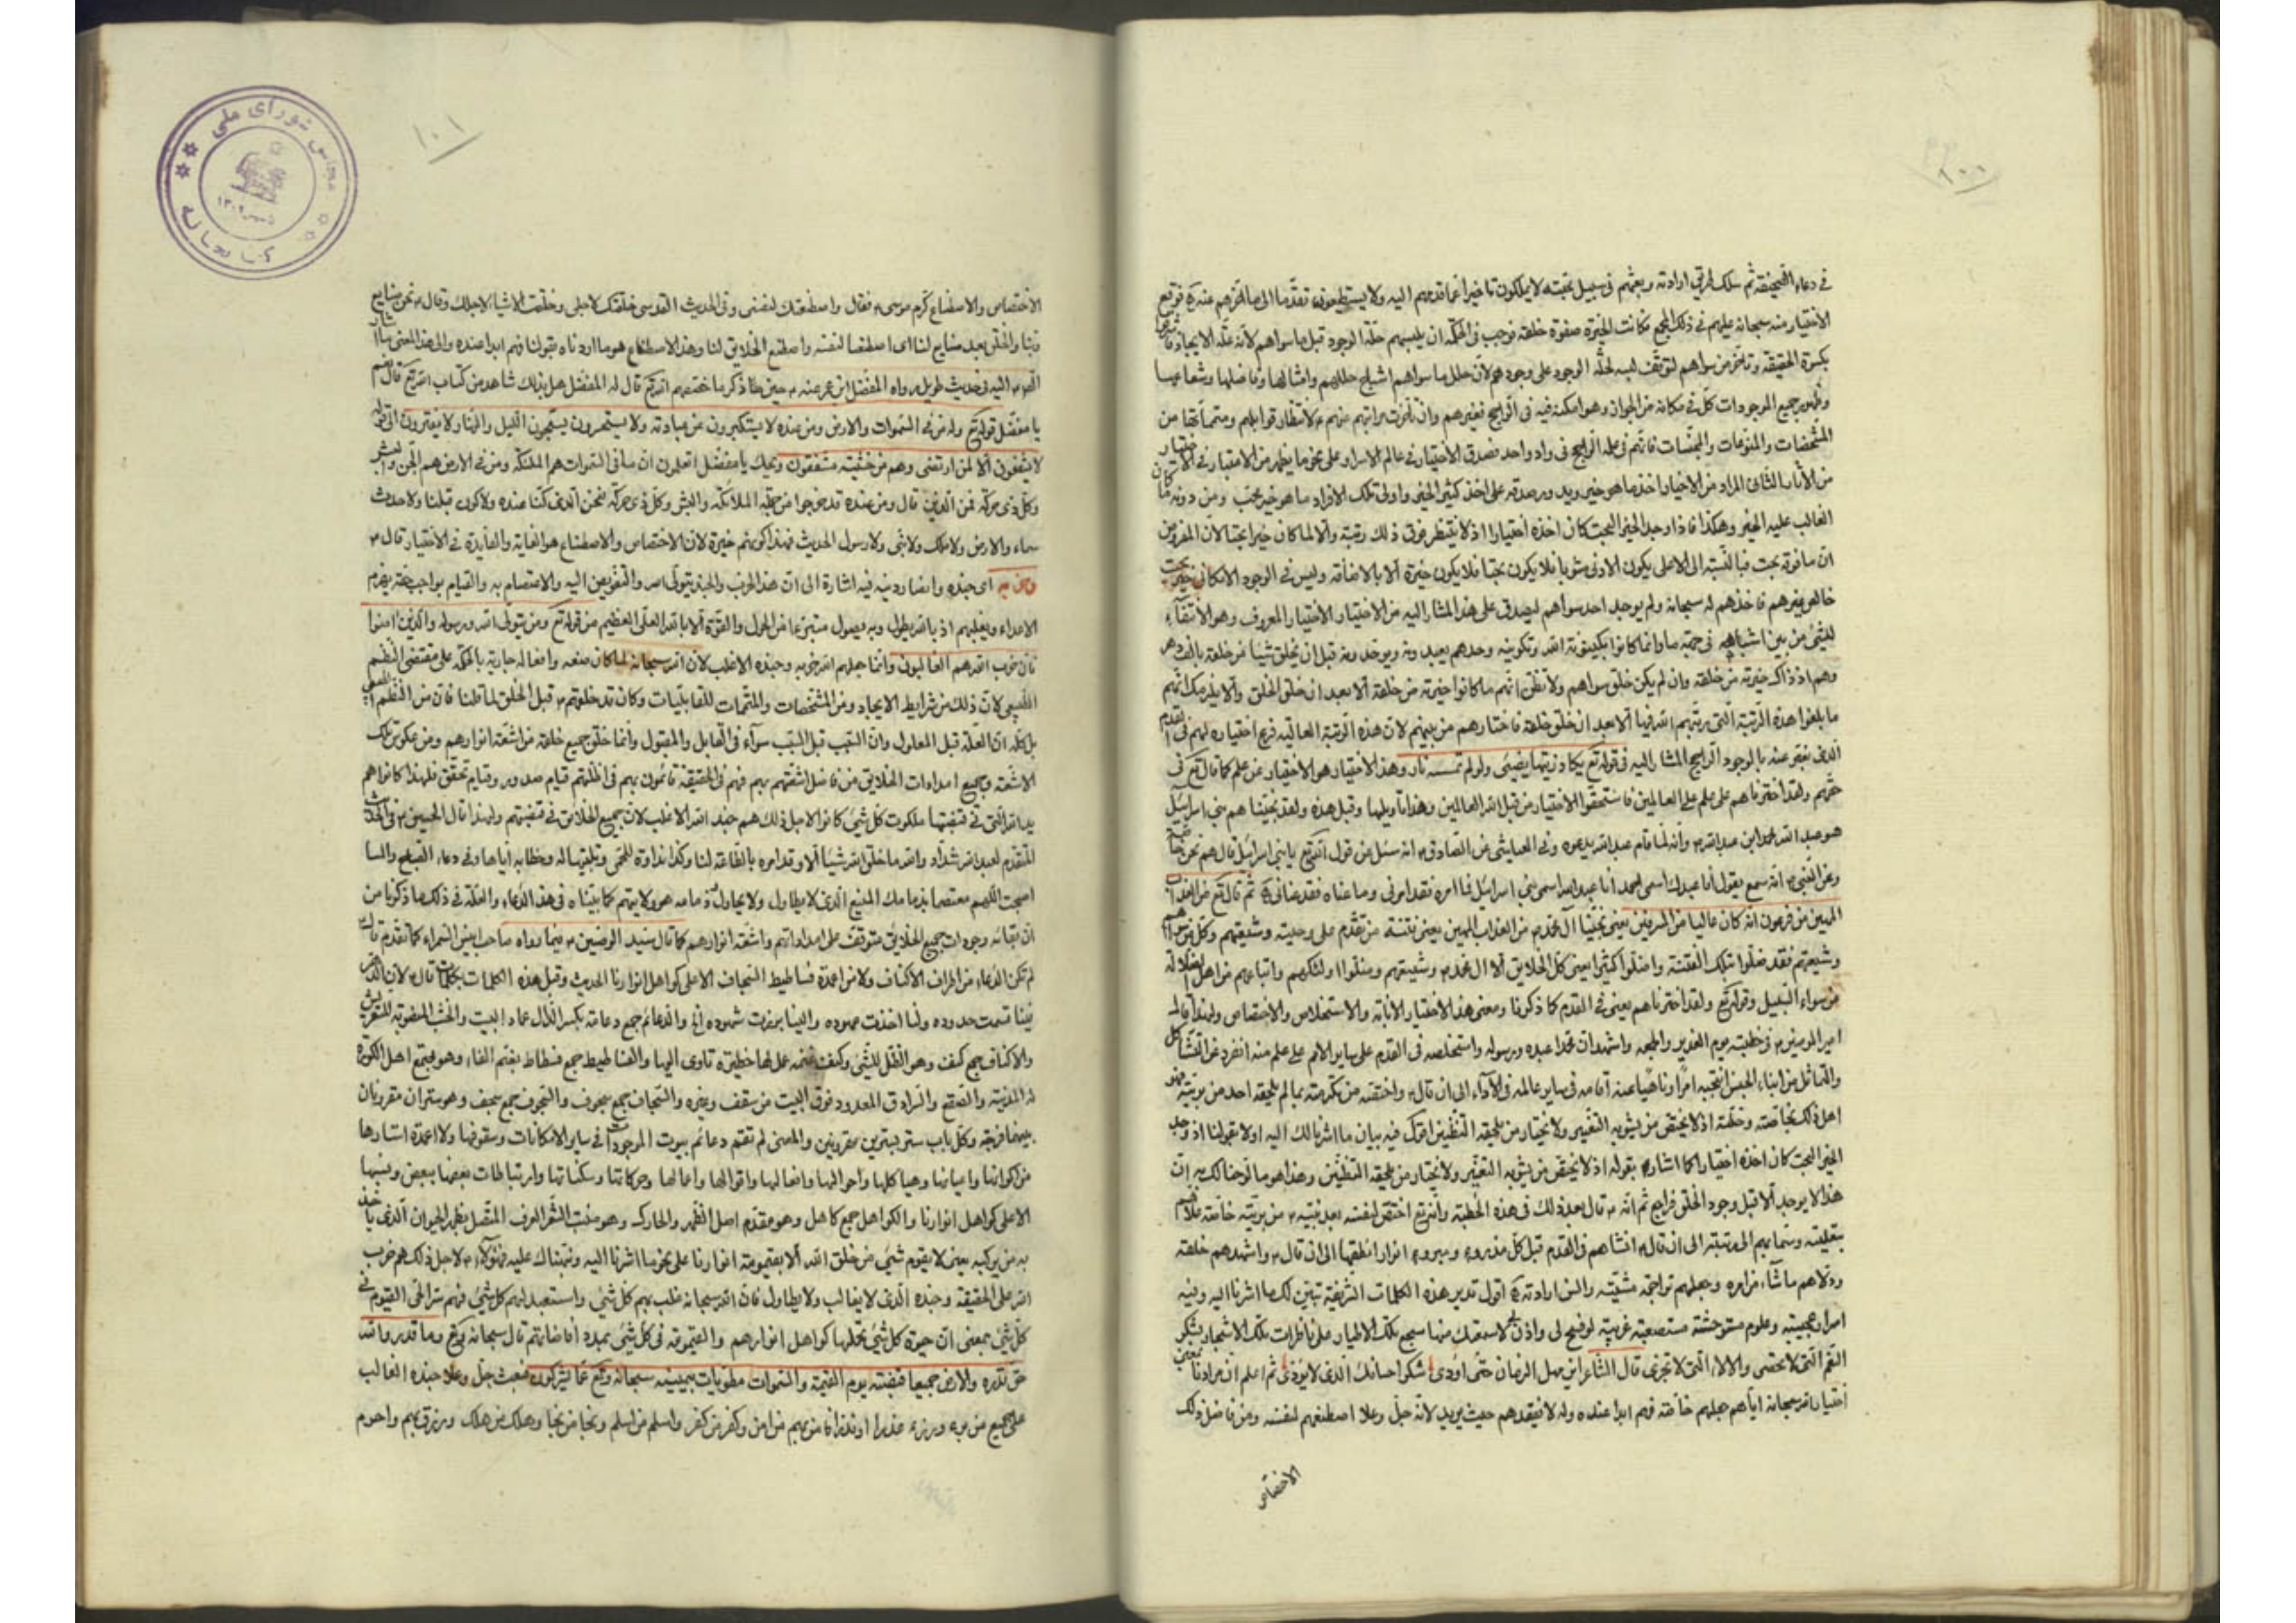 ١٠٠
في دعاء الصحيفة ثم سلك بهم طريق ارادته وبعثهم في سبيل محبته لا يملكون تاخيرا عما قدمهم اليه ولا يستطيعون تقدّما الى ما اخرهم عنه
الاختيار منه سبحانه عليهم في ذلك فكانت الخيرة صفوة خلقه فوجب في الحكمة ان يلبسهم حلة الوجود قبل ما سواهم لانه علّة الايجاد
بكسرة الحقيقة وتاخر من سواهم لتوقف لبسه لحلّة الوجود على وجودهم لان حلل ما سواهم اشباح حللهم وامثالها
وظهور جميع الموجودات كلّ في مكانه من الجواز وهو امكنة فيه في الراجح فغيرهم وان تاخرت مراتبهم عنهم لانتظار قوابلهم ومتمماتها من
المشخصات والمنوّعات والمجنّسات فانهم في علمه الراجح في واد واحد فصدق الاختيار في عالم الاسرار على نحو ما يظهر من الاعتبار في
من الاثار الثاني المراد من الاختيار اخذ ما هو خير ويد ورصدته على اخذ كثير الخير واولى تلك الافراد ما هو خير بحت ومن دونه
الغالب عليه الخير وهكذا فاذا وجد الخير البحت كان اخذه اختيارا اذ لا ينتظر فوق ذلك رتبة والا لما كان خيرا بحتا لان المفروض
ان ما فوقه بحت فبالنسبة الى الاعلى يكون الادنى مشوبا فلا يكون بحتا فلا يكون خيرة الا بالاضافة وليس في الوجود الامكاني خير بحت
خالص غيرهم فاخذهم له سبحانه ولم يوجد احد سواهم ليصدق على هذا المشار اليه من الاختيار الاختيار المعروف وهو الانتقاء
للشيء من بين اشباهه في وحدهم يعبدونه ويوحدونه قبل ان يخلق شيئا من خلقه
وهم اذ ذاك خيرته من خلقه وان لم يكن خلق سواهم ولا تظن انهم ما كانوا خيرته من خلقه الا بعد ان خلق الخلق والا يلزمك انهم
ما بلغوا هذه الرتبة التي رتبهم الله فيها الا بعد ان خلق خلقه فاختارهم من بينهم لان هذه الرتبة العالية فرع اختياره لهم في القدم
الذي نعبر عنه بالوجود الراجح المشار اليه في قوله تع يكاد زيتها يضيئ ولو لم تمسسه نار وهذا الاختيار هو الاختيار عن علم كما قال تع في
حقهم ولقد اخترناهم على علم على العالمين فاستحقوا الاختيار من قبل الله رب العالمين وهذا تاويلها وقبل هذه ولقد نجينا هم بني اسرائيل
هو عبد الله محمد ابن عبد الله وانه لما قام عبد الله يدعوه وفي العياشي عن الصادق انه سئل عن قول الله تع يا بني اسرائيل قال هم نحن خاصة
وعن النبي انه سمع يقول انا عبدك اسمي احمد انا عبد الله اسمي بني اسرائيل فما امره فقد امرني وما عناه فقد عناني ثم قال تع من العذاب
المهين من فرعون انه كان عاليا من المسرفين يعني نجينا آل محمد من العذاب المهين يعني فتنة من تقدم على وصيه وشيعتهم
وشيعتهم فقد ضلوا بتلك الفتنة واضلوا كثيرا يعني كل الخلايق الا ال محمد وشيعتهم وضلوا اولئكهم واتباعهم من اهل الضلالة
عن سواء السبيل وقوله تع ولقد اخترناهم يعني في القدم كما ذكرنا ومعنى هذا الاختيار الانابة والاستخلاص والاختصاص ولهذا قال
امير المؤمنين في خطبته يوم الغدير والجمعة واشهد ان محمدا عبده ورسوله واستخلصه في القدم على ساير الامم على علم منه انفرد عن التشاكل
والتماثل من ابناء الجنس انتجبه امرا وناهيا عنه اقامه في ساير عالمه في الاداء الى ان قال واختصه من تكرمته بما لم يلحقه احد من بريته فهو
اهل ذلك بخاصته وخلته اذ لا يختص من يشوبه التغيير ولا يختار من يلحقه التظنين اقول فيه بيان ما اشرنا لك اليه اولا بقولنا اذ وجد
الخير البحت كان اخذه اختيارا كما اشار بقوله اذ لا يختص من يشوبه التغيير ولا يختار من يلحقه التظنين وهذا هو ما لوحنا لك به ان
هذا لا يوجد الا قبل وجود الخلق فراجع ثم انه قال بعد ذلك في هذه الخطبة وان الله تع اختص لنفسه بعد نبيه من بريته خاصة علاهم
بتعليته وسما بهم الى رتبته الى ان قال انشاهم في القدم قبل كل مذروء ومبروء انوارا انطقها الى ان قال واشهدهم خلقه
وولاهم ما شاء من امره وجعلهم تراجم مشيته والسن ارادته اقول تدبر هذه الكلمات الشريفة تتبين لك ما اشرنا اليه وفيه
اسرار عجيبة وعلوم مستوحشة مستصعبة غريبة لو فسح لي واذن لاسمعتك منها سجع تلك الاطيار على ناظرات تلك الاشجار
النعم التي لا تحصى والالاء التي لا تجزى قال الشاعر ابن سهل الزمان حتى اودى شكر احسانك الذي لا يؤدى ثم اعلم ان مرادنا
اختيار الله سبحانه اياهم جعلهم خاصة فهم ابدا عنده وله لا فيفقدهم حيث يريد لانه جلّ وعلا اصطنعهم لنفسه ومن فاضل ذلك
الاختصاص
١٠١
مجلس شورای ملی
١٣٠٢
كتابخانه
الاختصاص والاصطناع كرم موسى فقال واصطنعتك لنفسي وفي الحديث القدسي خلقتك لاجلي وخلقت الاشياء لاجلك وقال نحن صنايع
ربنا والخلق بعد صنايع لنا اي اصطنعنا لنفسه واصطنع الخلايق لنا وهذا الاصطناع هو ما اردناه بقولنا فهم ابدا عنده والى هذا المعنى
اليه في حديث طويل رواه المفضل ابن عمر عنه حين ذكر ما خصهم الله تع قال له المفضل هل بذلك شاهد من كتاب الله تع قال نعم
يا مفضل قوله تع وله من في السموات والارض ومن عنده لا يستكبرون عن عبادته ولا يستحسرون يسبحون الليل والنهار لا يفترون الى قوله
لا يشفعون الا لمن ارتضى وهم من خشيته مشفقون ويحك يا مفضل اتعلمون ان من في السموات هم الملئكة ومن في الارض هم الجن والبشر
وكل ذي حركة فمن الذين قال ومن عنده قد خرجوا من جملة الملائكة والبشر وكل ذي حركة فنحن الذين كنا عنده ولا كون قبلنا ولا حدوث
سماء ولا ارض ولا ملك ولا نبي ولا رسول الحديث فهذا كونهم خيرة لان الاختصاص والاصطناع هو الغاية والفايدة في الاختيار قال
وحزبه اي جنده وانصار دينه فيه اشارة الى ان هذا الحزب والجند بتولى الله والتفويض اليه والاعتصام به والقيام بواجب حقه يهزم
الاعداء ويغلبهم اذ بالله يطول وبه يصول متبرئا من الحول والقوة الا بالله العلي العظيم من قوله تع ومن يتولى الله ورسوله والذين امنوا
فان حزب الله هم الغالبون وانما جعلهم الله حزبه وجنده الاغلب لان الله سبحانه لما كان صنعه وافعاله جارية بالحكمة على مقتضى النظم
الطبيعي لان ذلك من شرايط الايجاد ومن المشخصات والمتممات للقابليات وكان قد خلقهم قبل الخلق لما قلنا فان من النظم الطبيعي
ان العلّة قبل المعلول وان السبب قبل المسبب سواء في القابل والمقبول وانما خلق جميع خلقه من اشعة انوارهم ومن عكوس تلك
الاشعة وجميع امدادات الخلايق من فاضل اشعتهم بهم فهم في الحقيقة قائمون بهم في اظلتهم قيام صدور وقيام تحقق فلهذا كانوا هم
يد الله التي في قبضتها ملكوت كل شيئ كانوا لاجل ذلك هم جند الله الاغلب لان جميع الخلائق في قبضتهم ولهذا قال الحسين في الحديث
المتقدم لعبد الله بن شداد والله ما خلق الله شيئا الا وقد امره بالطاعة لنا وكذا نداؤه للحمى وتلبيتها له وخطابه اياها وفي دعاء الصباح والمساء
اصبحت اللهم معتصما بذمامك المنيع الذي لا يطاول ولا يحاول وذمامه هو ولايتهم كما بيّناه في هذا الدعاء والعلّة في ذلك ما ذكرنا من
ان بقائه وجودات جميع الخلايق متوقف على امداداتهم واشعة انوارهم كما قال سيد الوصيين فيما رواه صاحب انيس السمراء كما تقدم قال
لم تكن الدعاء من اطراف الاكناف ولا من اعمدة فساطيط السجاف الا على كواهل انوارنا الحديث وقبل هذه الكلمات قال لان الدهر
فينا قسمت حدوده ولنا اخذت عهوده والينا برزت شهوده والدعائم جمع دعامة بكسر الدال عماد البيت والخشب المنصوبة للتعريش
والاكناف جمع كنف وهو الظل للشيئ وكنف غنمه عمل لها حظيرة تاوى اليها والفساطيط جمع فسطاط بضم الفاء وهو مجتمع اهل الكورة
له المدينة والصقع والسرادق المعدود فوق البيت من سقف وغيره والسجاف جمع سجوف والسجوف جمع سجف وهو ستران مقرونان
بينهما فرجة وكل باب ستر بسترين مقرونين والمعنى لم تقم دعائم بيوت الموجودات في ساير الامكانات وسقوفها ولا اعمدة استارها
من اكوانها واعيانها وهياكلها واحوالها وافعالها واقوالها واعمالها وحركاتها وسكناتها وارتباطات بعضها ببعض ونسبها
الا على كواهل انوارنا والكواهل جمع كاهل وهو مقدم اصل الظهر والحارك وهو منبت الشعر العرف المتصل بظهر الحيوان الذي ياخذ
به من يركبه يعني لا يقوم شيئ من خلق الله الا بقيومية انوارنا على نحو ما اشرنا اليه ونبهناك عليه فهؤلاء لاجل ذلك هم حزب
الله على الحقيقة وجنده الذي لا يغالب ولا يطاول فان الله سبحانه غلب بهم كل شيئ واستعبد لهم كل شيئ فهم سر الحي القيوم في
كل شيئ بمعنى ان حيوة كل شيئ تحملها كواهل انوارهم والقيومية في كل شيئ بمدد افاضاتهم قال سبحانه وتع وما قدروا الله
حق قدره والارض جميعا قبضته يوم القيمة والسموات مطويات بيمينه سبحانه وتع عما يشركون فبعث جل وعلا جنده الغالب
على جميع من برء وذرء عذرا او نذرا فامن بهم من امن وكفر من كفر واسلم من اسلم ونجا من نجا وهلك من هلك ورزق بهم واحرم